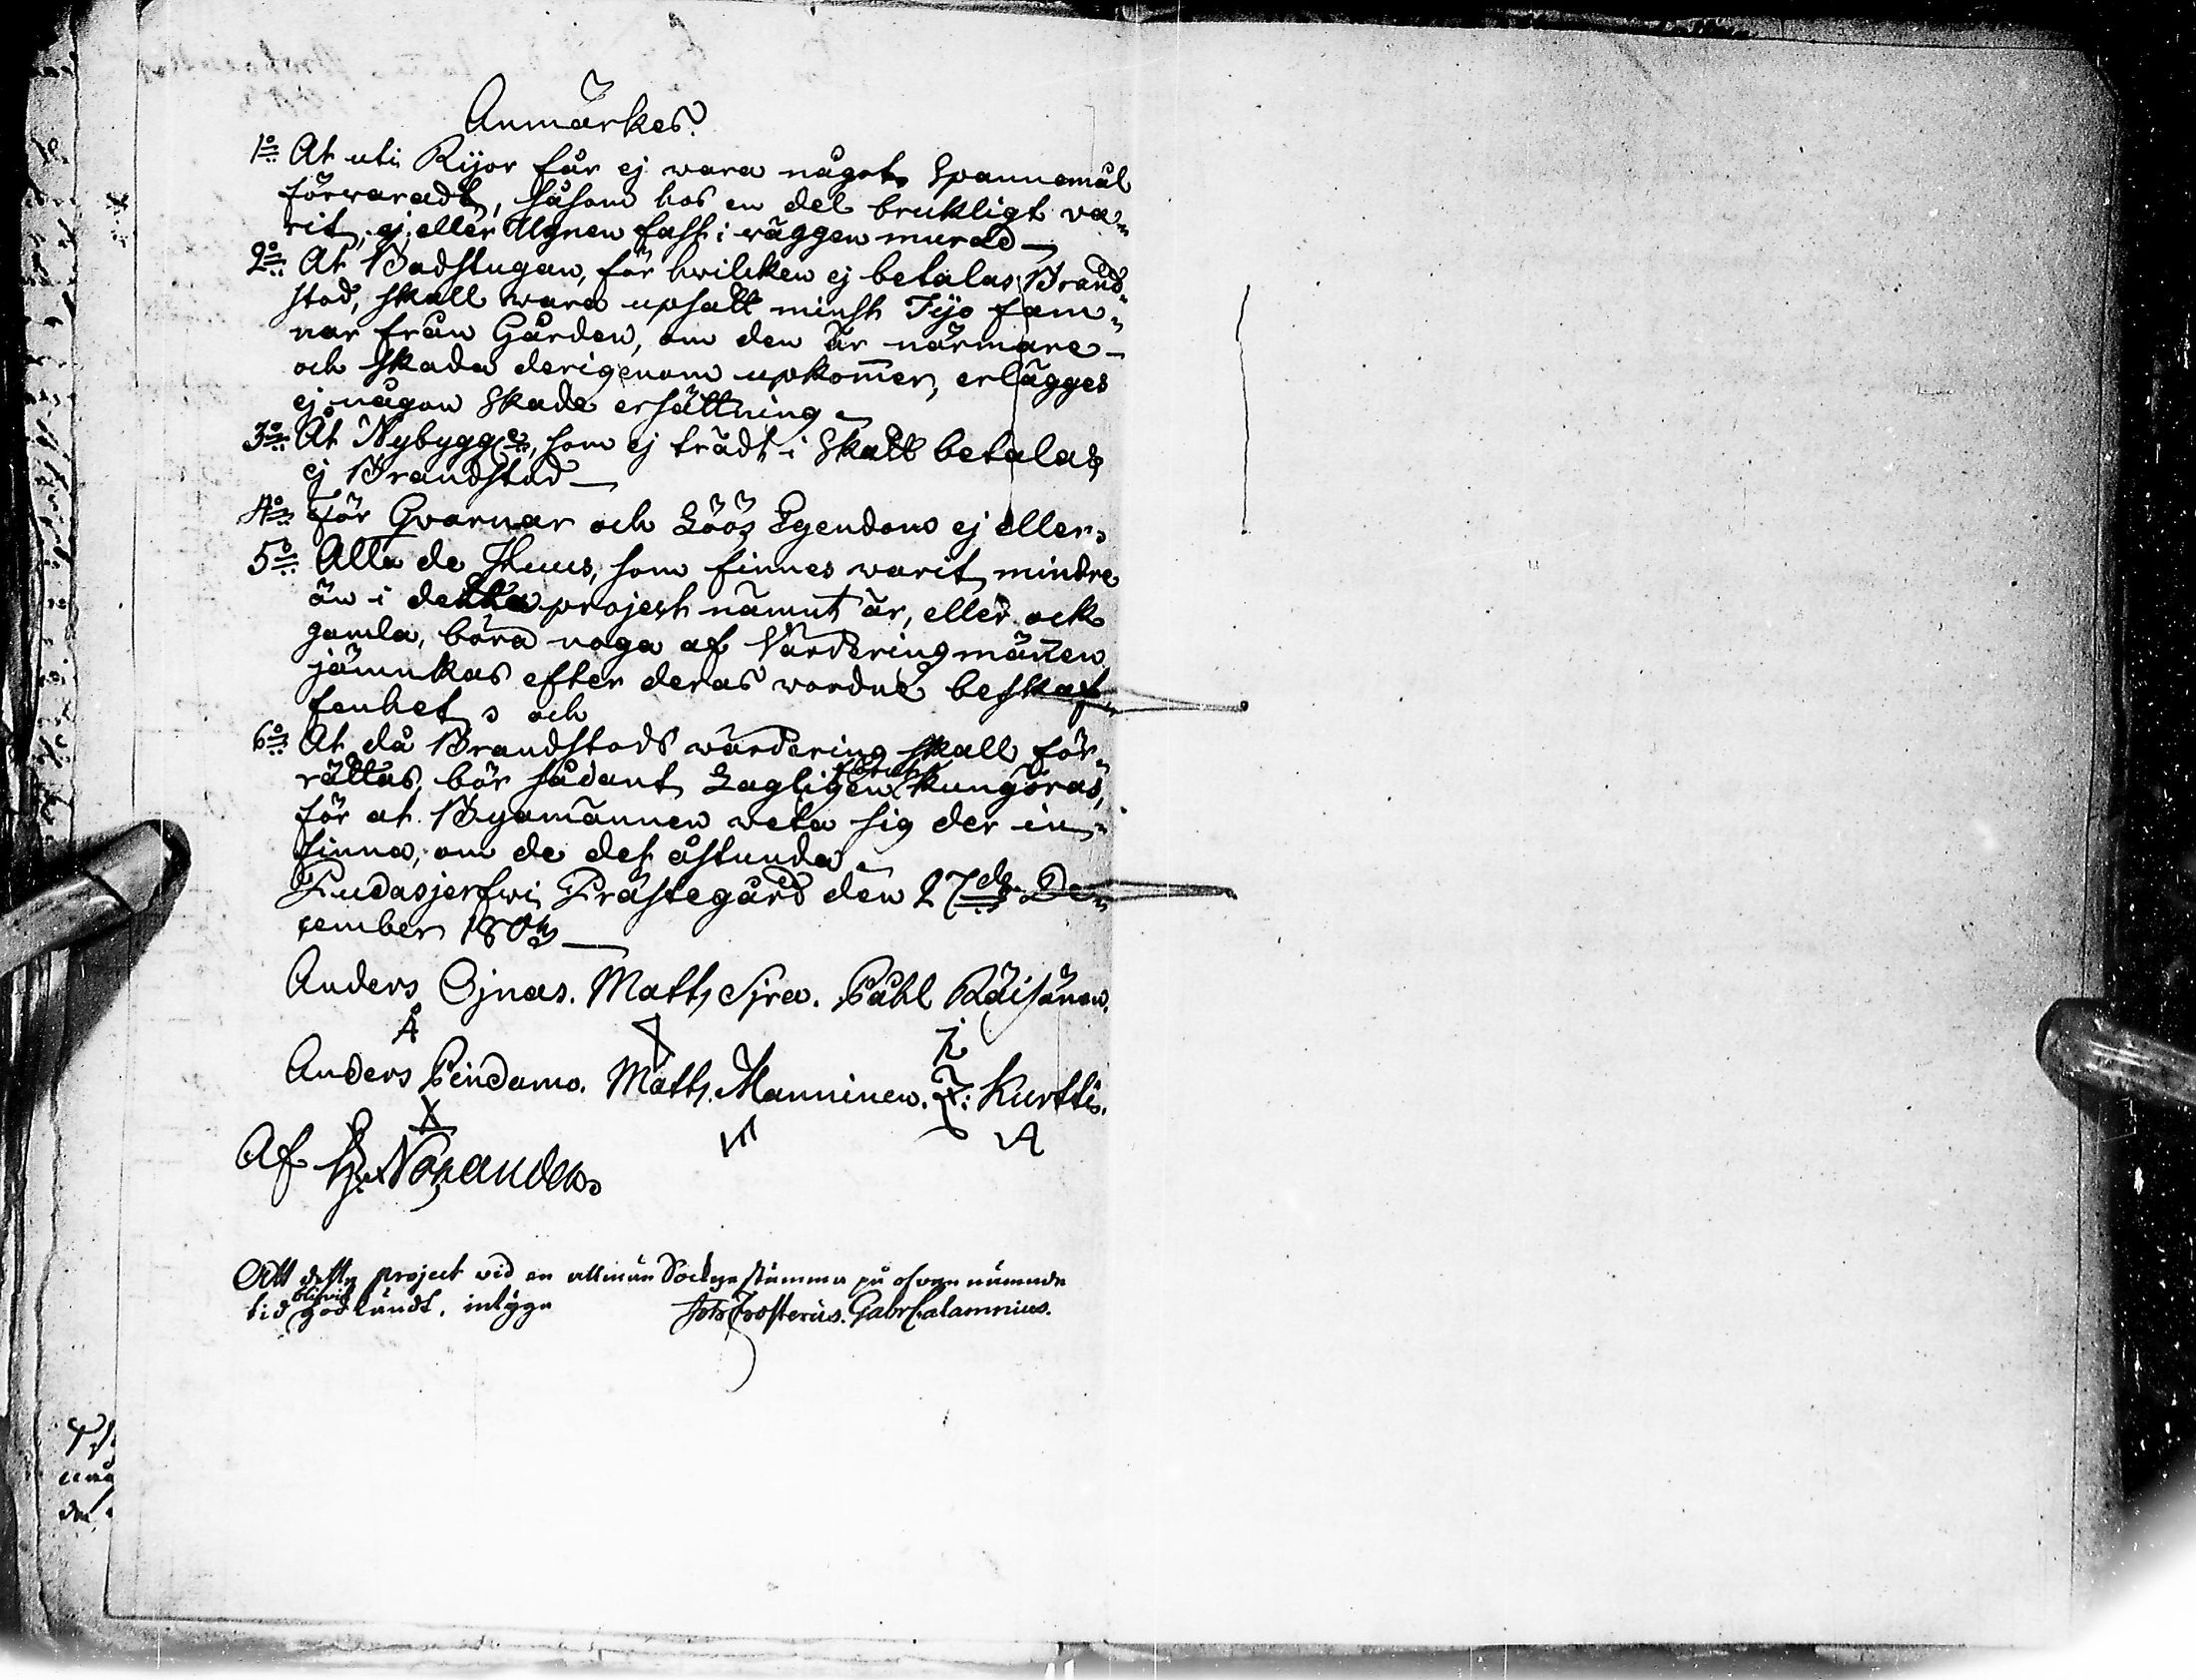 Anmärkes.
1o At uti Rijor får ej wara något Spannemål
förwaradt, såsom hos en del brukligt va=
rit, ej eller Ugnen fast i wäggen murad —
2o At Badstugan, för hwilcken ej betalas Brand=
stod, skall wara upsatt minst Tijo fam=
nar från Gården, om den är närmare
och skada derigenom upkommer, erlägges
ej någon Skade ersättning —
3o At Nybygge, som ej trädt i Skatt betalas
ej Brandstod —
4o För Qvarnar och Löös Egendom ej eller.
5o Alla de Huus, som finnes warit mindre
än i detta project nämnt är, eller ock
gamla, böra noga af Värderingsmännen
jämnkas efter deras wordne beskaf=
fenhet, och
6o At då Brandstods wärdering skall för=
rättas, bör sådant Lagligen kungöras,
för at Byamännen weta sig der in=
finna, om de det åstunda —
Pudasjerfwi Prästegård den 27de De=
cember 180
Anders Ojnas. Matts Sjra. Påhl Räisänen.
Anders Pindamo. Matts Manninen. Z: Kurtti.
Af
Att detta project vid en allmän Sockne stämma på ofvan nämnde
tid blifvit godkändt, intyga Joh Frosterus. Gabr Calamnius.